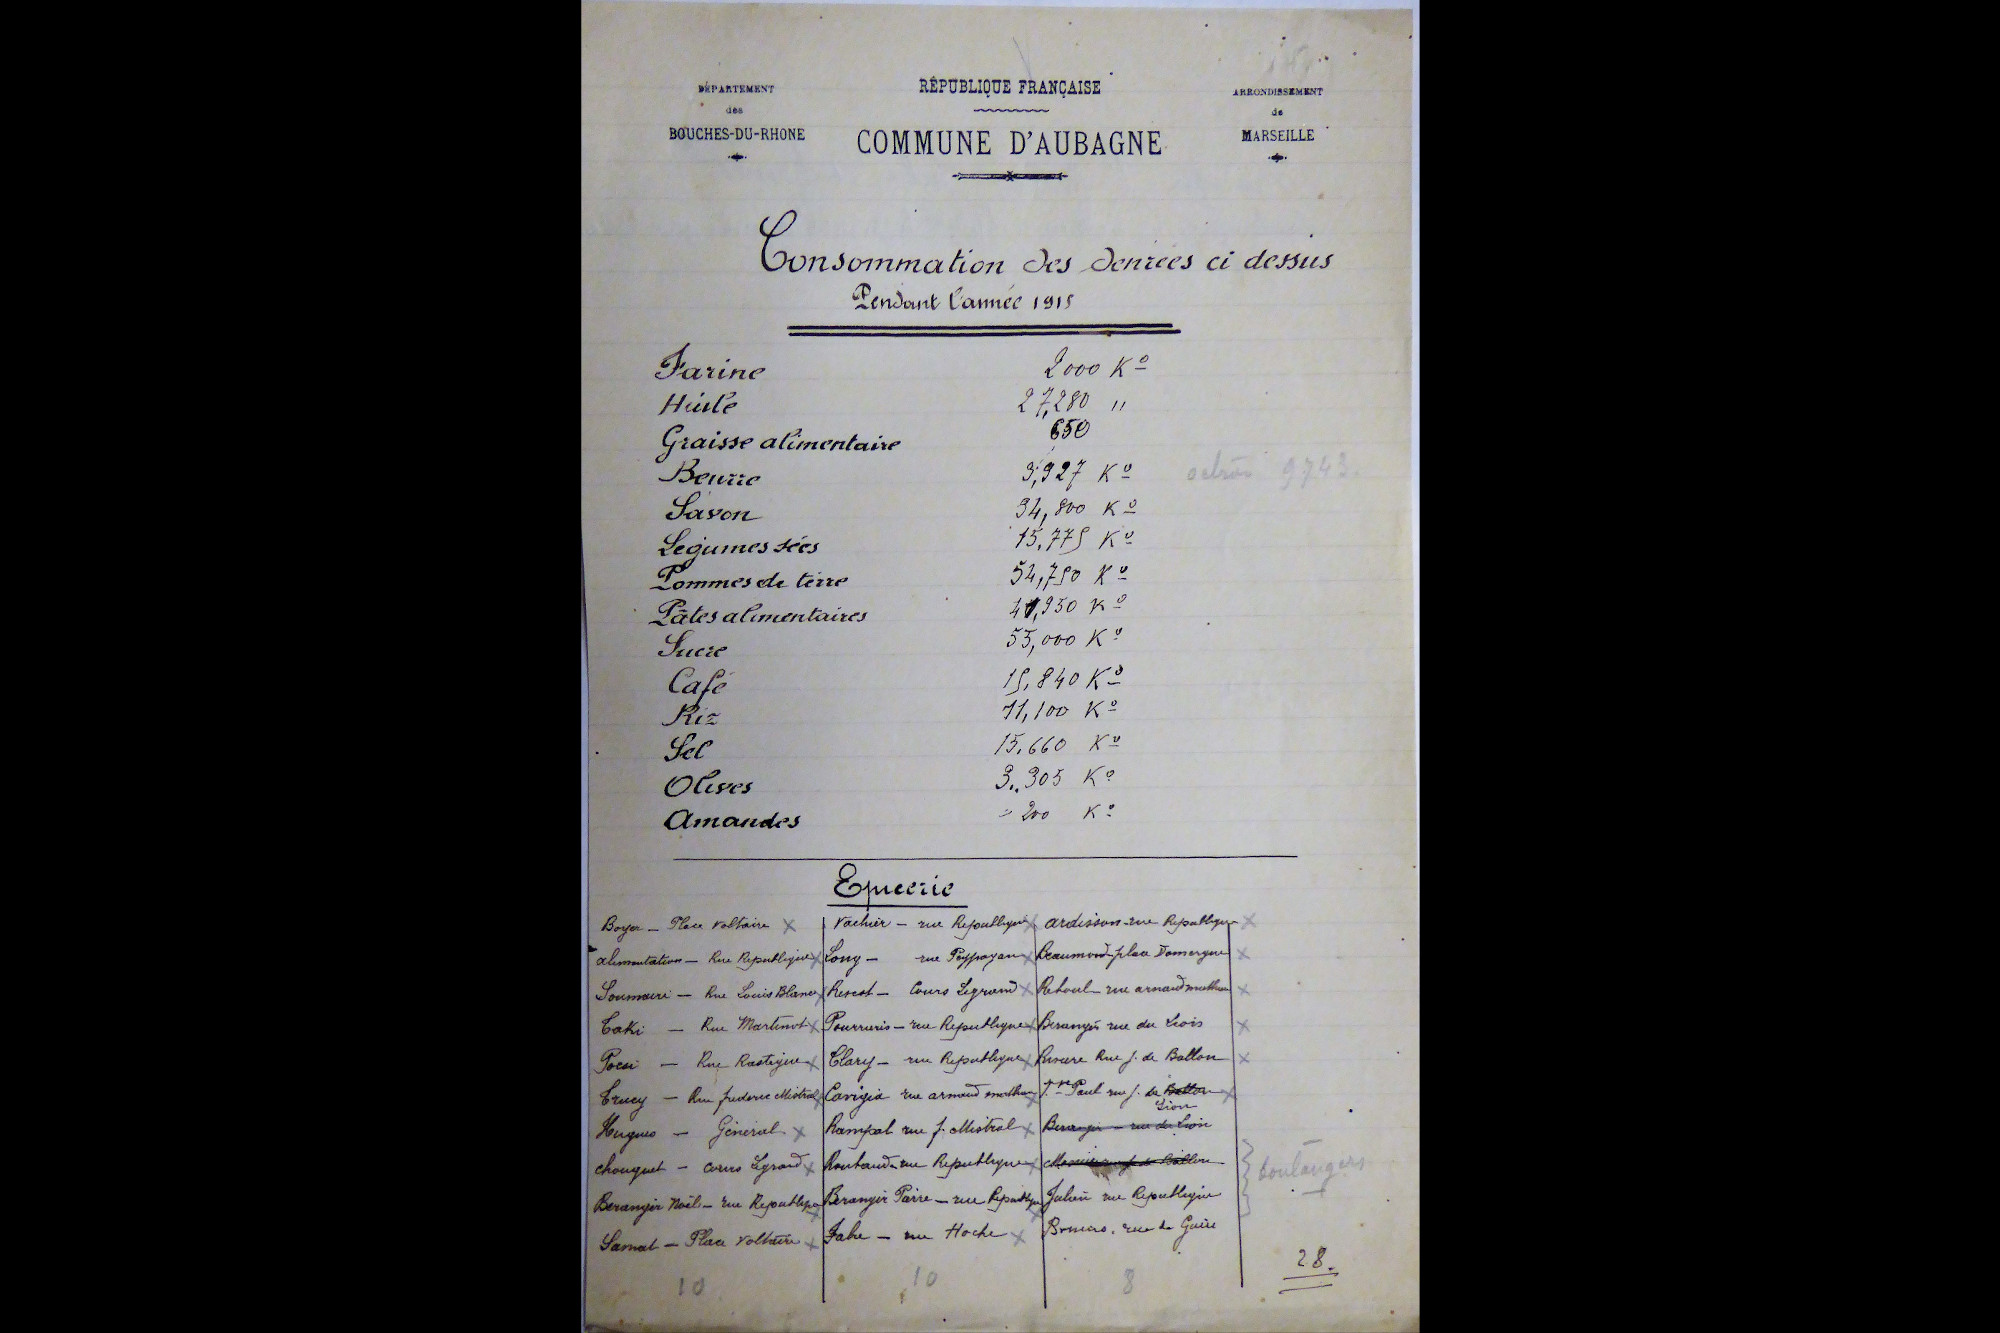 DÉPARTEMENT
des
BOUCHES-DU-RHONE
RÉPUBLIQUE FRANÇAISE
COMMUNE D'AUBAGNE
ARRONDISSEMENT
de
MARSEILLE
Consommation des denrées ci dessus
Pendant l'année 1915
Farine 2000 Kº
Huile 27,280 "
Graisse alimentaire 650
Beurre 3,927 Kº octroi 9743.
Savon 34,800 Kº
Legumes sécs 15,775 Kº
Pommes de terre 54,750 Kº
Pâtes alimentaires 41,950 Kº
Sucre 55,000 Kº
Café 15,840 Kº
Riz 11,100 Kº
Sel 15,660 Kº
Olives 3,305 Kº
Amandes 200 Kº
Epicerie
Boyer – Place Voltaire × Vachier – rue Republique × ardisson – rue Republique ×
alimentation – Rue Republique × Long – rue × Beaumond place Domergue ×
– Rue Louis Blanc × – Cours Legrand × Reboul – rue arnaud mathieu ×
Taki – Rue Martinot × – rue Republique × Berangér rue du Lion ×
– Rue Rastegue × Clary – rue Republique × Rue J. de Ballon ×
Trucy – Rue frederic Mistral × Cavigia rue arnaud mathieu × Paul rue J. de Ballon ×
Lion
Hugues – Général × Rampal rue f. Mistral × Beranger – rue du Lion
chouquet – cours Legrand × Roubaud – rue Republique × Ballon
boulangers
Berangér Noël – rue Republique × Berangér – rue Republique × Julien rue Republique
Samat – Place Voltaire × Fabre – rue Hoche × rue de
28.
10 10 8